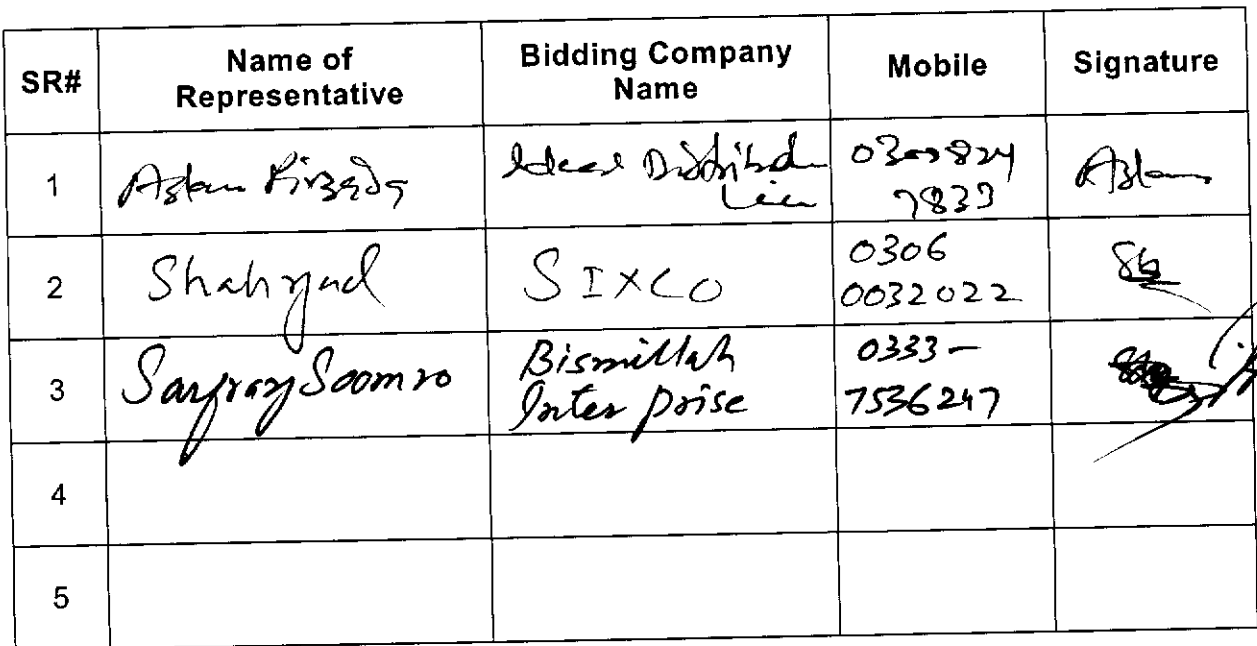 SR# Name of Representative Bidding Company Name Mobile Signature
1 Aslam Pirzada Ideal 0300824 7833 Aslam
2 Shahzad SIXCO 0306 0032022
3 Sarfraz Soomro Bismillah Inter prise 0333- 7536247
4
5